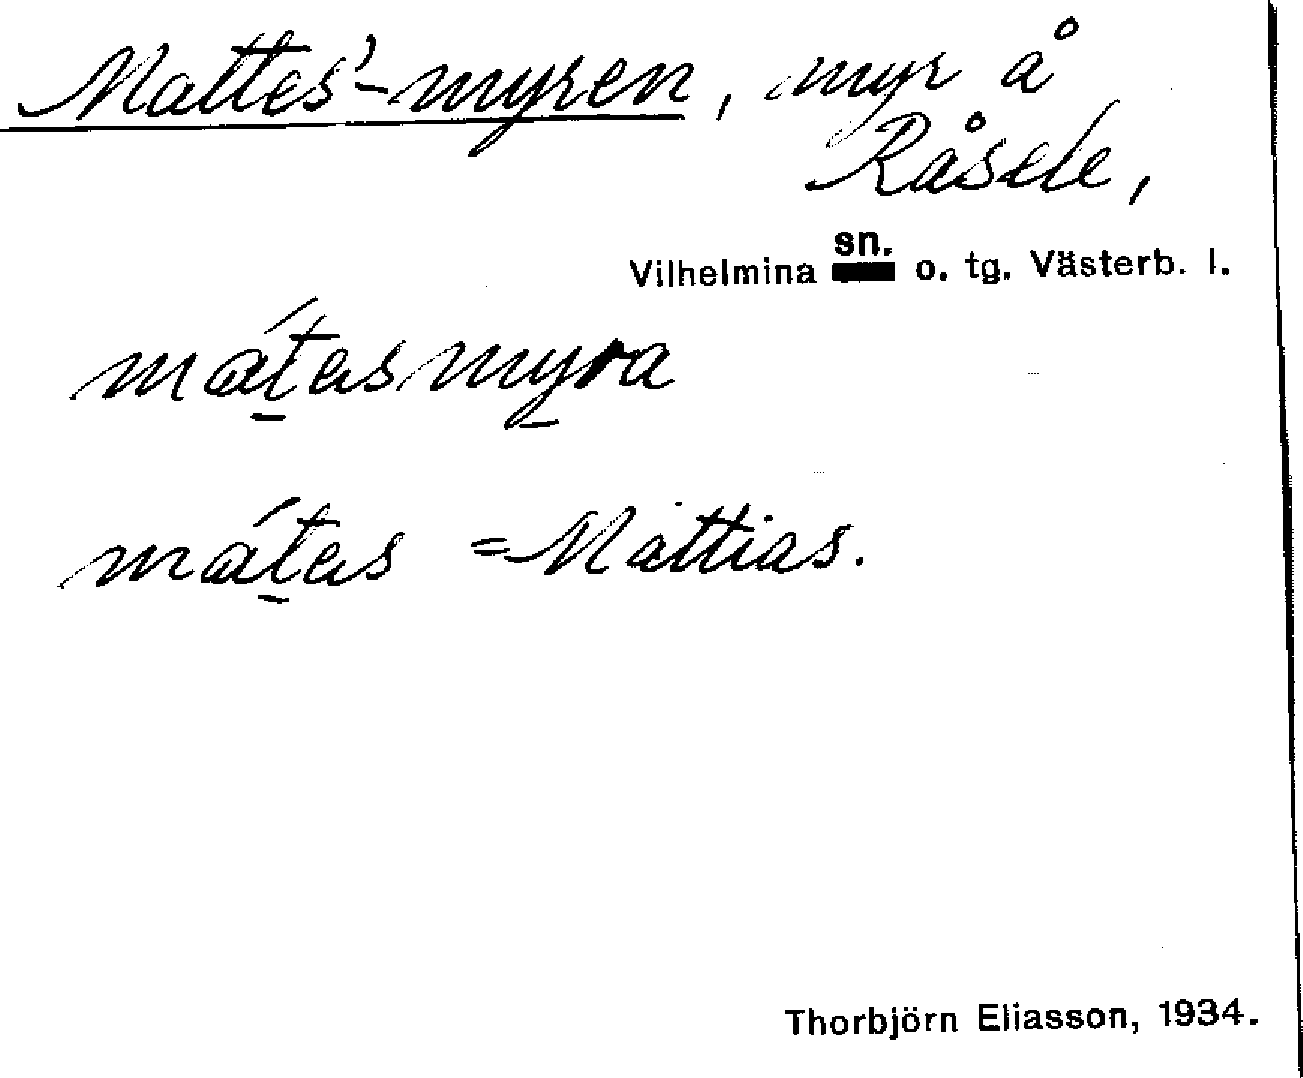 Mattes'-myren, myr å
Råsele,
Vilhelmina sn. o. tg. Västerb. l.
mát̠asmy̠ra
mát̠as = Mattias.
Thorbjörn Eliasson, 1934.